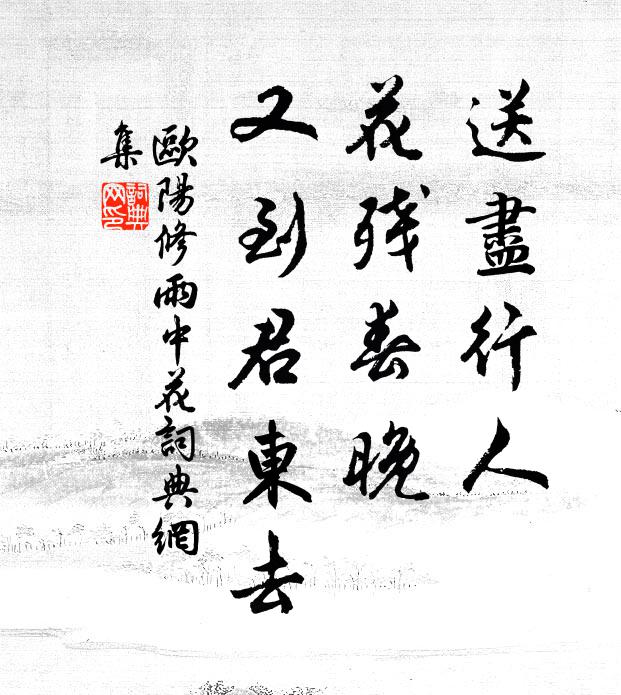 送盡行人
花残春晚
又到君東去
歐陽修雨中花詞典網
集
詞典
网印